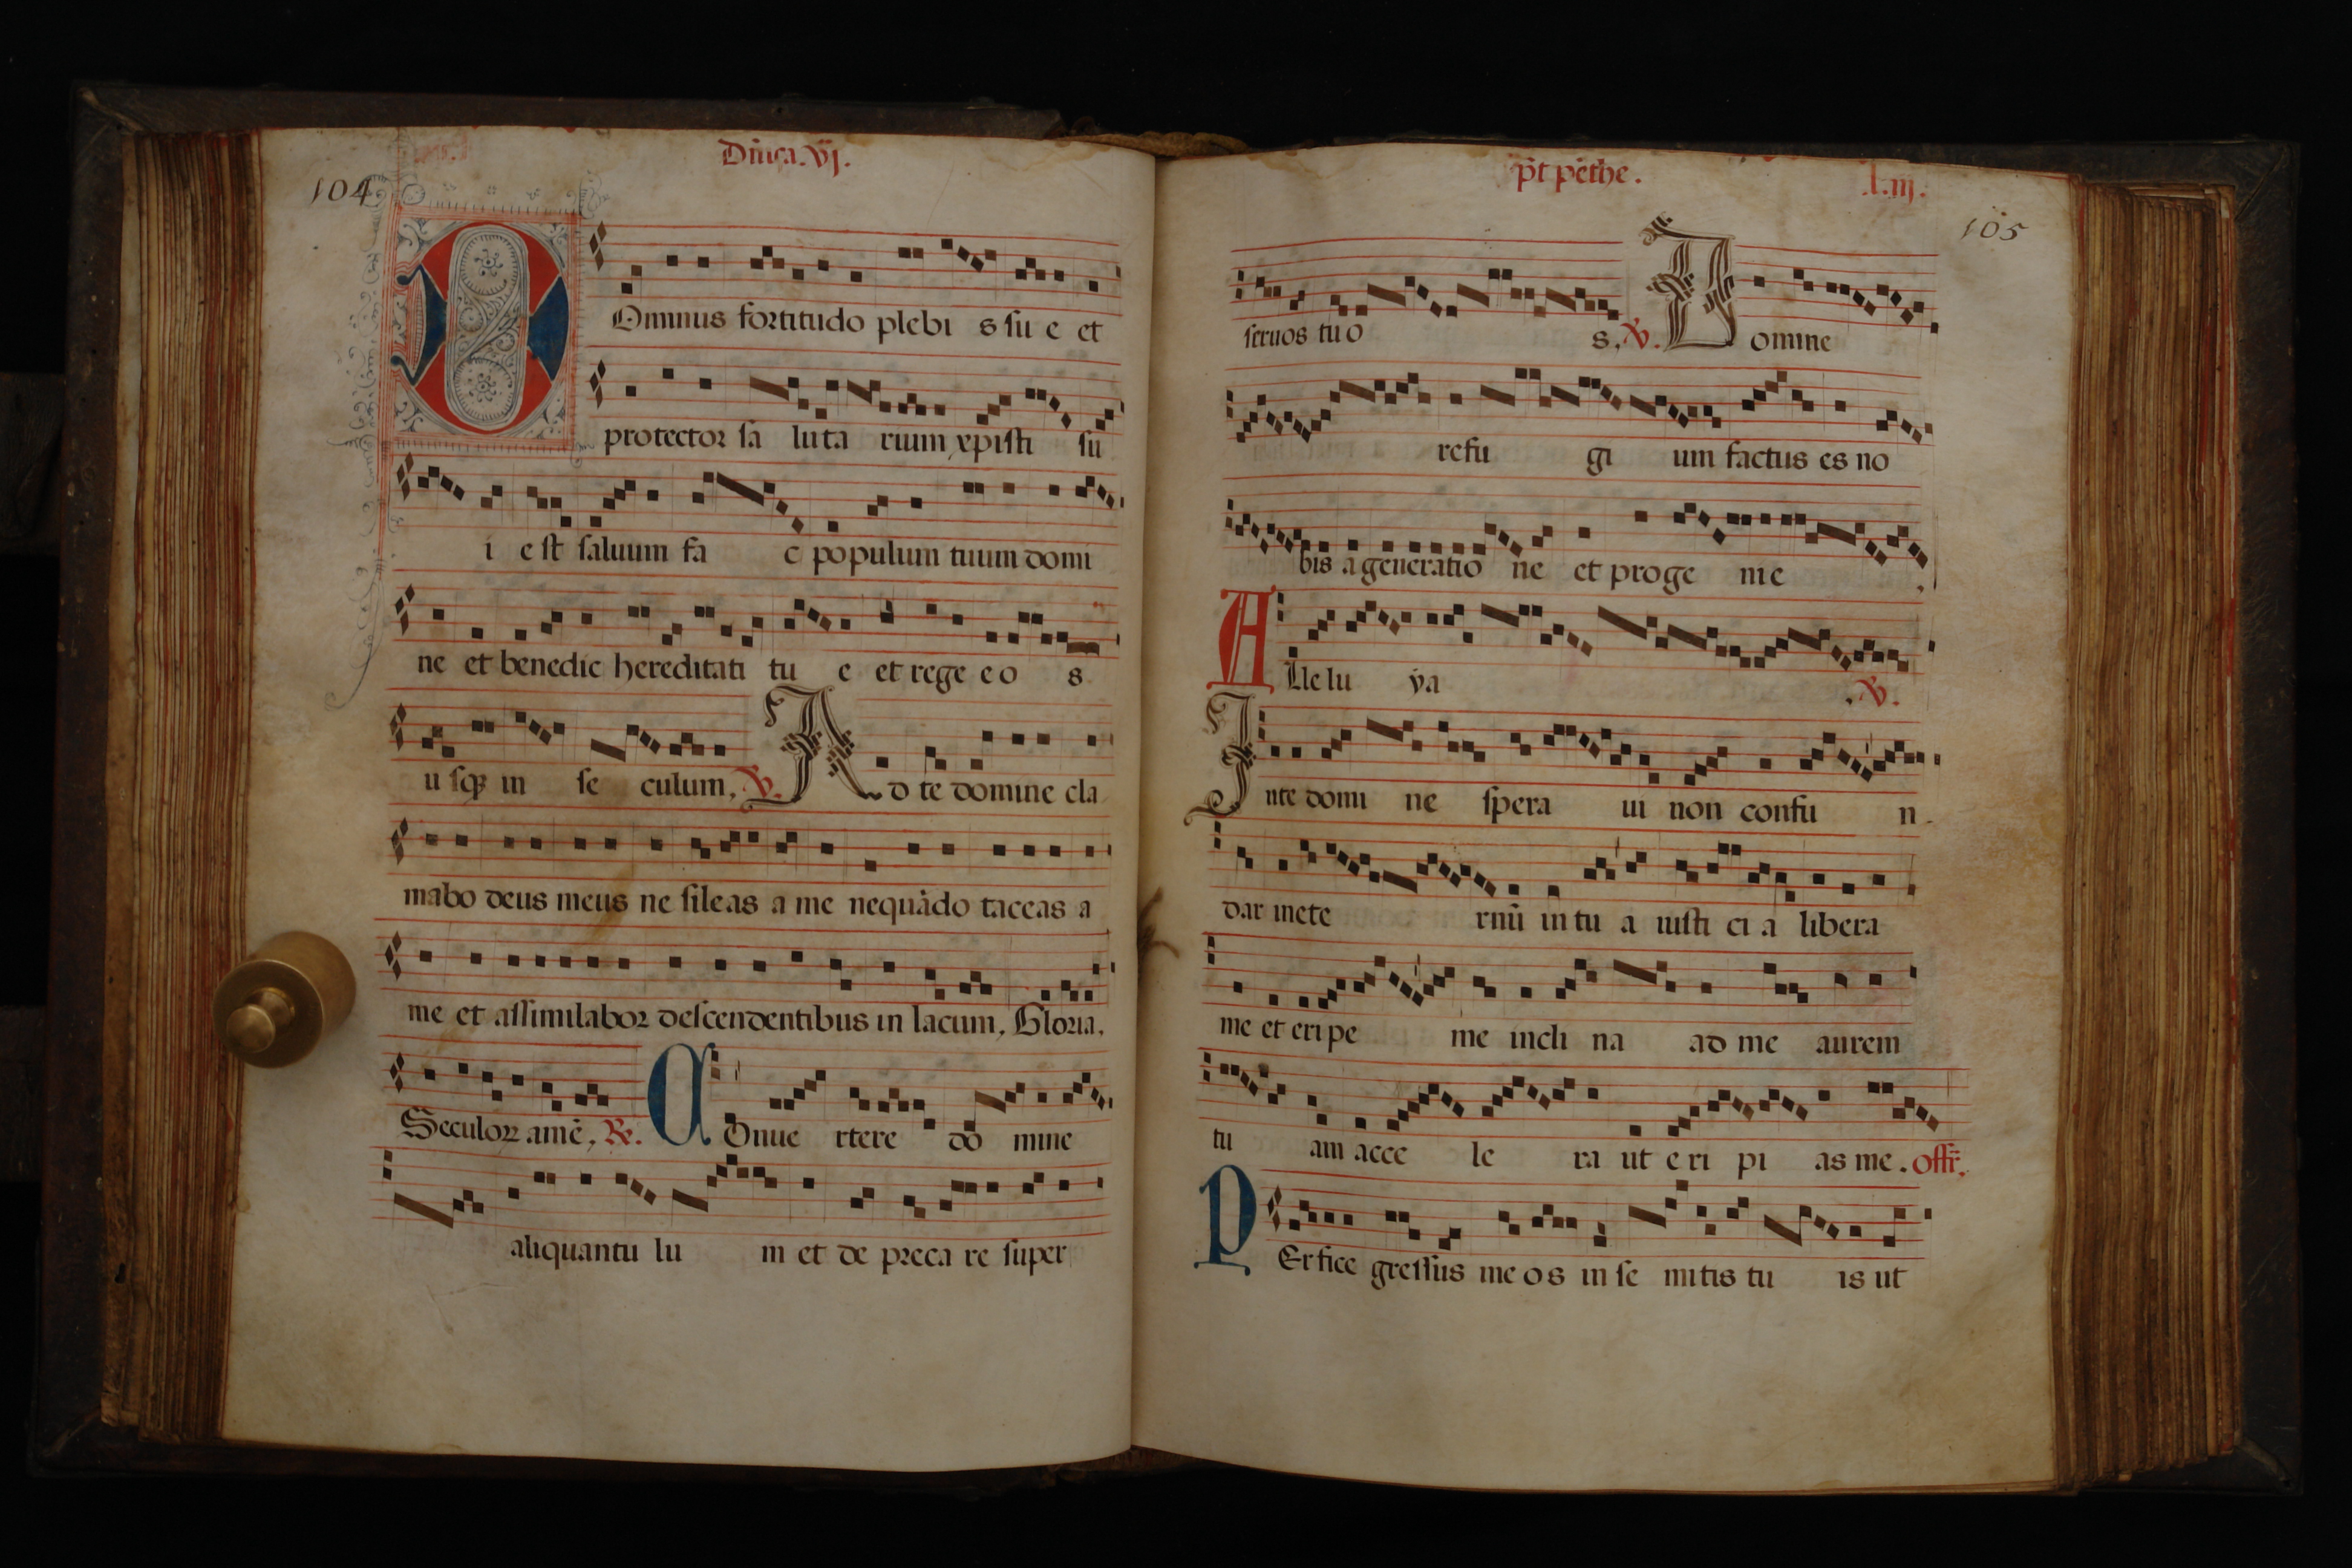 104
Dñica. vj.
Ominus fortitudo plebi s su e et
protector sa luta rium xpisti su
i est saluum fa c populum tuum domi
ne et benedic hereditati tu e et rege eo s
u sqz in se culum. V. A d te domine cla
mabo deus meus ne sileas a me nequādo taceas a
me et assimilabor descendentibus in lacum. Gloria.
Seculorz amē. R. C Onue rtere do mine
aliquantu lu m et de preca re super
p̄t pēthe. .l.iij.
105
seruos tuo s. V. D omine
refu gi um factus es no
bis a generatio ne et proge nie
A Lle lu ya . V.
I nte domi ne spera ui non confu n
dar inete rnū in tu a iusti ci a libera
me et eripe me incli na ad me aurem
tu am acce le ra ut e ri pi as me. offr̄.
P Erfice gressus me o s in se mitis tu is ut